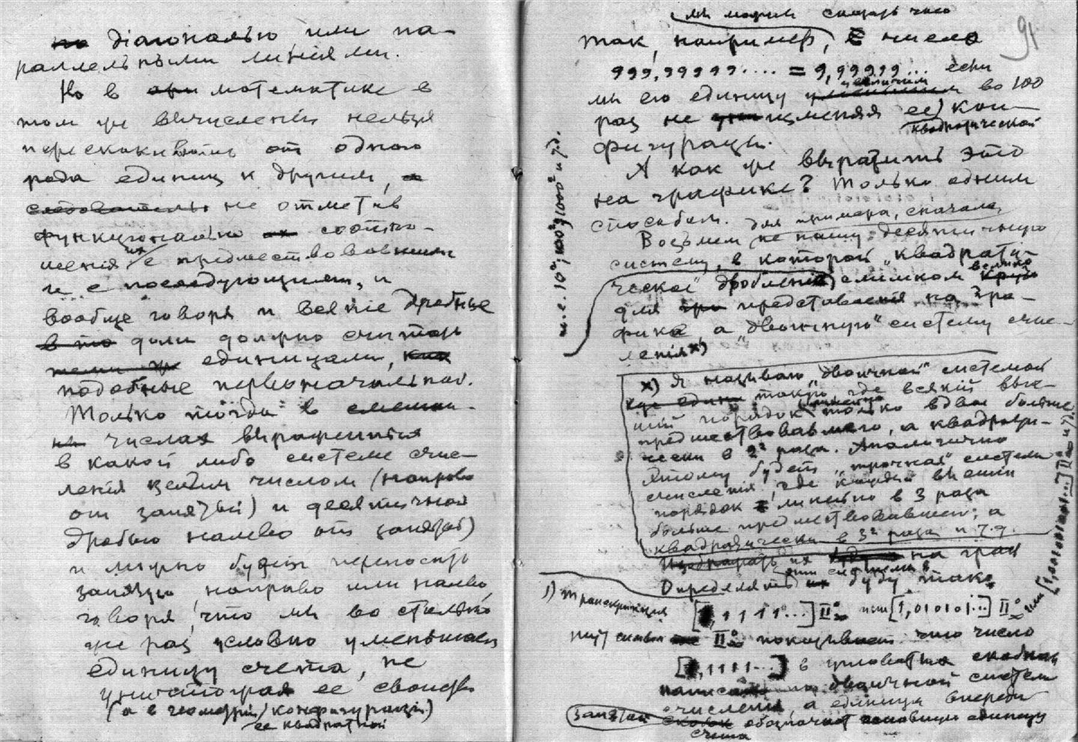 діагональю или па-
раллельными линіями.
Но в математике в
том же вычислении нельзя
перескакивать от одного
рода единиц к другим,
не отметив
функционально соотно-
шения их с предшествовавшим
и с последующим, и
вообще говоря и всякие дробные
доли должно считать
единицами,
подобные первоначальной.
Только тогда в
числах выраженных
в какой либо системе счис-
ления целым числом (направо
от запятой) и десятичной
дробью налево от запятой)
и можно будет переносить
запятую направо или налево
говоря, что мы во столько
же раз условно уменьшаем
единицу счета, не
уничтожая ее свойств
(а в геометрии конфигурации)
ее квадратной
91
мы можем сказать что
так, например, число
999,99999.... = 9,99999... если
мы его единицу увеличим во 100
раз не изменяя ее кон-
квадратической
фигурации.
А как же выразить это
на графике? Только одним
способом. Для примера, сначала,
Возьмем не нашу десятичную
систему, в которой "квадрати-
ческое" дробление слишком велико
для представления на гра-
фике а "двоичную" систему счис-
ления x)
т.е. 10², 100², 1000² и т.д.
x) Я называю "двоичной" системой
такую, где всякий выс-
ший порядок только вдвое больше
предшествовавшего, а квадрати-
чески в 2² раза. Аналогично
этому будет "троичная" система
счисления, где каждый высший
порядок линейно в 3 раза
больше предшествовавшей; а
квадратически в 3² раза и т.д.
на граф
Определять буду так:
1) Транскрипция [1,1111...] II° или [1,010101...] II°
II° показывает что число
[1,1111...] в угловатых скобках
написано по двоичной системе
счисления, а единица впереди
запятой обозначает основную единицу
счета